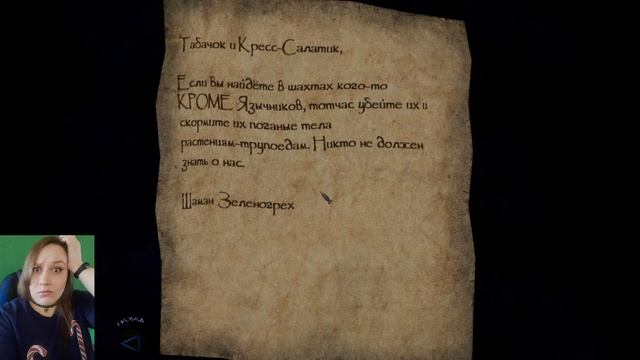 Табачок и Кресс-Салатик,
Если вы найдёте в шахтах кого-то
КРОМЕ Язычников, тотчас убейте их и
скормите их поганые тела
растениям-трупоедам. Никто не должен
знать о нас.
Шаман Зеленогрех